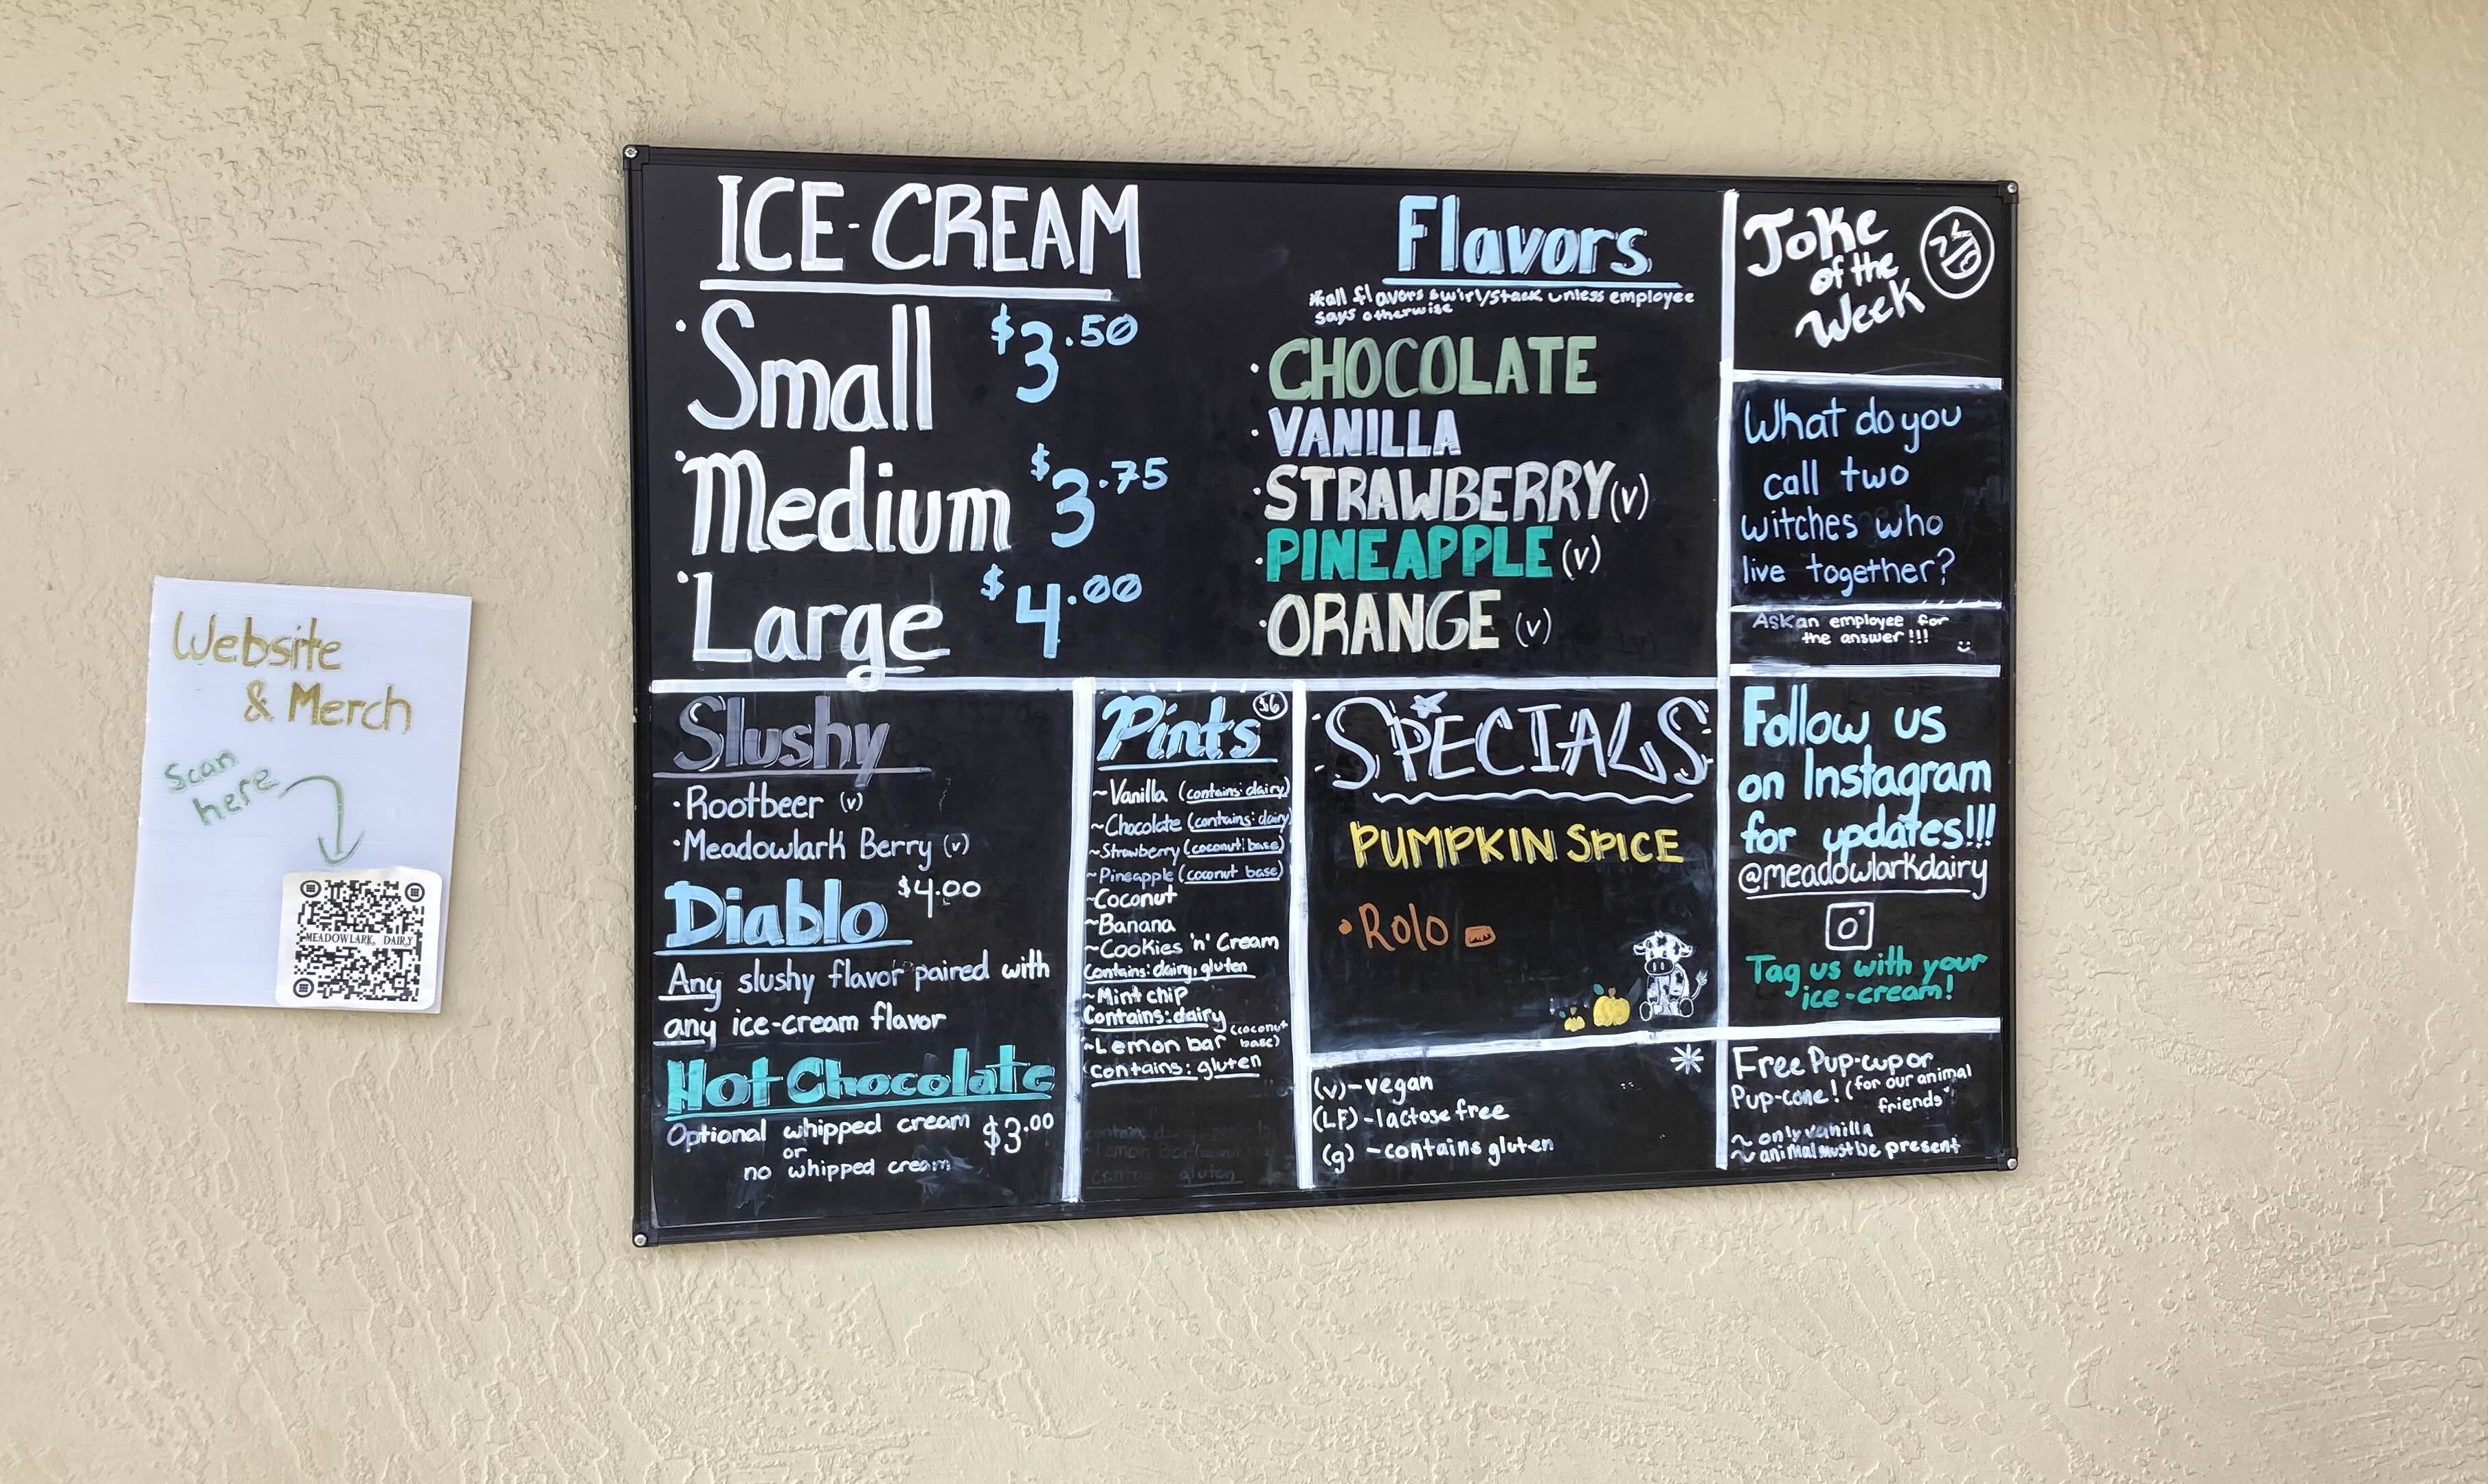 Website
& Merch
Scan
here
MEADOWLARK DAIRY
ICE-CREAM
·Small $3.50
·Medium $3.75
·Large $4.00
Flavors
*all flavors swirl/stack unless employee
says otherwise
·CHOCOLATE
·VANILLA
·STRAWBERRY (v)
·PINEAPPLE (v)
·ORANGE (v)
Joke
of the
Week
What do you
call two
witches who
live together?
Ask an employee for
the answer!!!
Slushy
·Rootbeer (v)
·Meadowlark Berry (v)
Diablo $4.00
Any slushy flavor paired with
any ice-cream flavor
Hot Chocolate
Optional whipped cream $3.00
or
no whipped cream
Pints $6
~Vanilla (contains: dairy)
~Chocolate (contains: dairy)
~Strawberry (coconut base)
~Pineapple (coconut base)
~Coconut
~Banana
~Cookies 'n' Cream
Contains: dairy, gluten
~Mint chip
Contains: dairy
~Lemon bar (coconut
base)
contains: gluten
SPECIALS
PUMPKIN SPICE
·Rolo
(v)-vegan
(LF)-lactose free
(g)-contains gluten
Follow us
on Instagram
for updates!!!
@meadowlarkdairy
Tag us with your
ice-cream!
Free Pup-cup or
Pup-cone! (for our animal
friends)
~ only vanilla
~ animal must be present